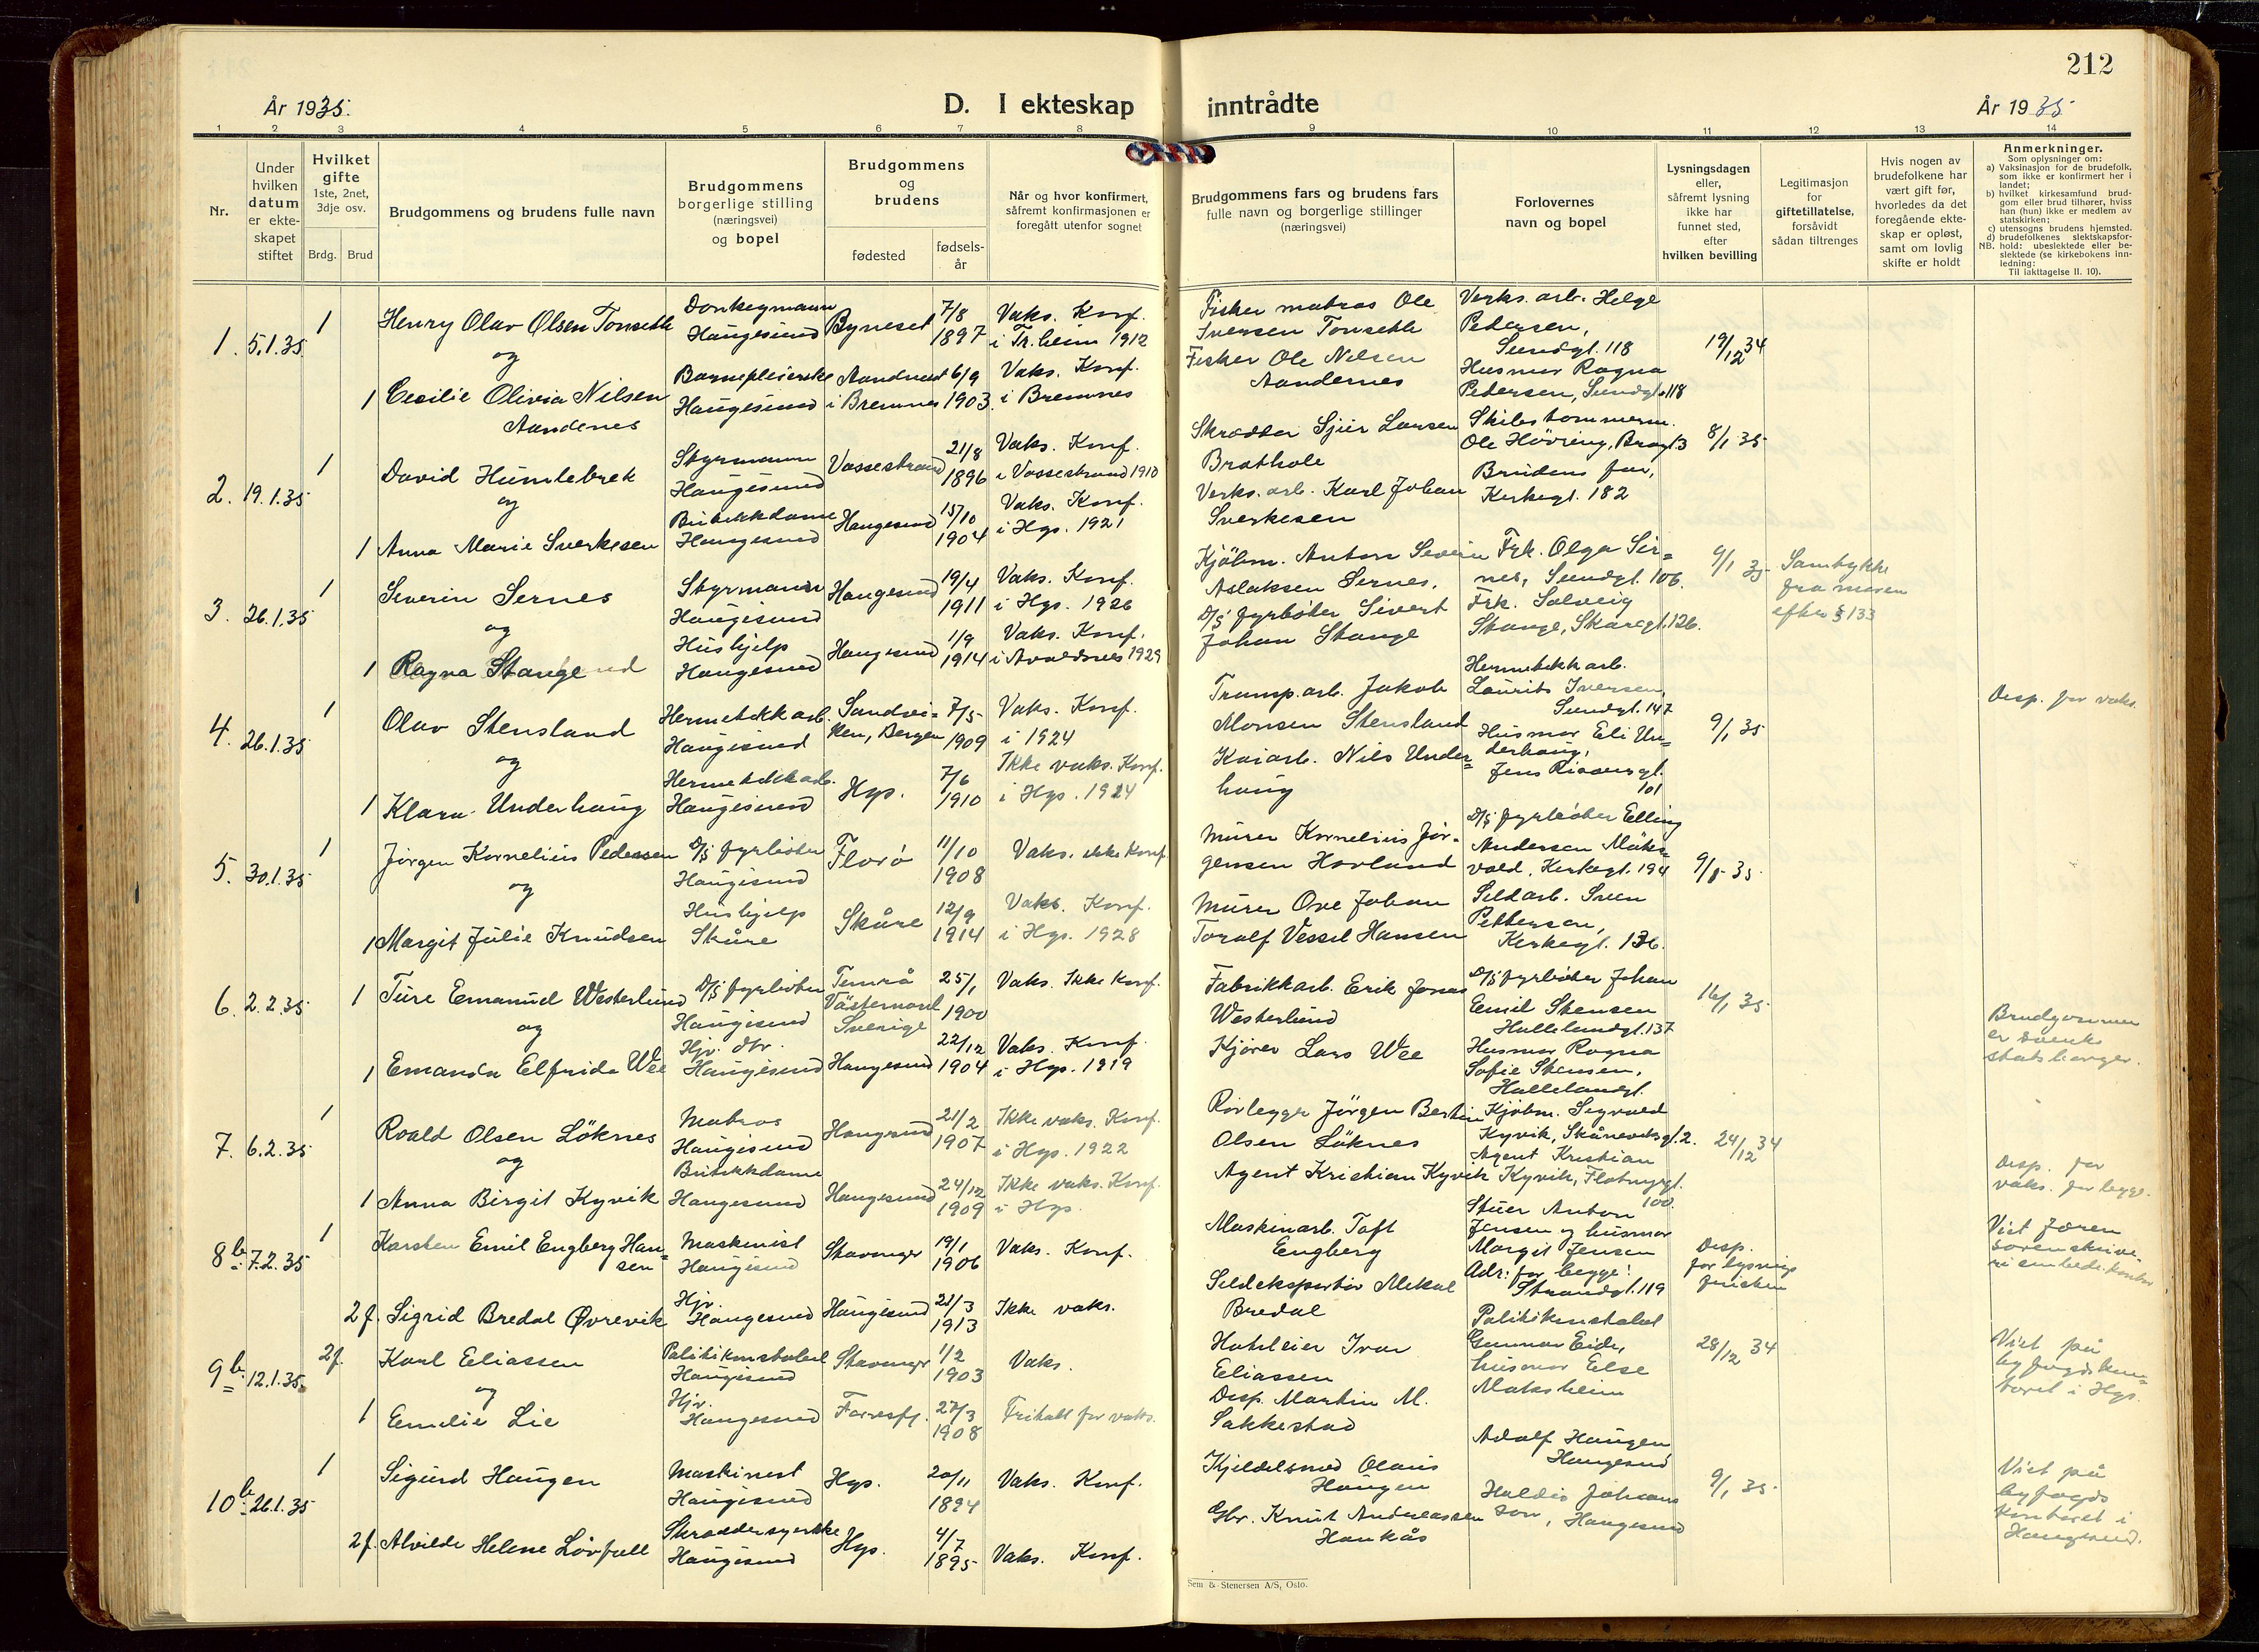 212
År 1935.
D. I ekteskap inntrådte
År 1935
1 2 3 4 5 6 7 8 9 10 11 12 13 14
Nr.
Under hvilken datum er ekteskapet stiftet
Hvilket gifte
1ste, 2net, 3dje osv.
Brdg. Brud
Brudgommens og brudens fulle navn
Brudgommens borgerlige stilling (næringsvei) og bopel
Brudgommens og brudens
fødested
fødsels-år
Når og hvor konfirmert, såfremt konfirmasjonen er foregått utenfor sognet
Brudgommens fars og brudens fars fulle navn og borgerlige stillinger (næringsvei)
Forlovernes navn og bopel
Lysningsdagen eller, såfremt lysning ikke har funnet sted, efter hvilken bevilling
Legitimasjon for giftetillatelse, forsåvidt sådan tiltrenges
Hvis nogen av brudefolkene har vært gift før, hvorledes da det foregående ekteskap er opløst, samt om lovlig skifte er holdt
Anmerkninger.
Som oplysninger om:
a) Vaksinasjon for de brudefolk, som ikke er konfirmert her i landet;
b) hvilket kirkesamfund brudgom eller brud tilhører, hviss han (hun) ikke er medlem av statskirken;
c) utensogns brudens hjemsted.
d) brudefolkenes slektskapsfor-
NB. hold: ubeslektede eller beslektede (se kirkebokens innledning:
Til iakttagelse II. 10).
1. 5.1.35 1 Henry Olav Olsen Tonseth Donkeymann Haugesund Byneset 7/8 1897 Vaks. Konf. i Tr.heim 1912
Fisker matros Ole Iversen Tonseth
Verks. arb. Helge Pedersen, Sundgt. 118
19/12 34
og
1 Cecilie Olivia Nilsen Aandenes Barnepleierske Haugesund i Bremnes 6/9 1903 Vaks. Konf. i Bremnes
Fisker Ole Nilsen Aandernes
Husmor Ragna Pedersen, Sundgt. 118
2. 19.1.35 1 David Humlebrek Styrmann Haugesund Vossestrand 21/8 1896 Vaks. Konf. i Vossestrand 1910
Skrædder Sjur Larsen Brathole
Ole Hövring, 8/1 35
og
1 Anna Marie Sverkesen Butikkdame Haugesund Haugesund 15/10 1904 Vaks. Konf. i Hgs. 1921
Verks. arb. Karl Johan Sverkesen
Brudens far, Kirkegt. 182
3. 26.1.35 1 Severin Sernes Styrmann Haugesund Haugesund 19/4 1911 Vaks. Konf. i Hgs. 1926
Kjöbm. Anton Severin Aslaksen Sernes.
Frk. Olga Sernes, Sundgt. 106.
9/1 35 Samtykke fra moren efter § 133
og
1 Ragna Stange Hushjelp Haugesund Haugesund 1/9 1914 Vaks. Konf. i Avaldsnes 1929
D/S fyrböter Sivert Johan Stange
Frk. Solveig Stange, Skåregt. 126.
4. 26.1.35 1 Olav Stensland Hermetikkarb. Haugesund Sandviken, Bergen 7/5 1909 Vaks. Konf. i 1924
Jakob Monsen Stensland
Hermetikkarb. Laurits Iversen, Sundgt. 147
9/1 35 Disp. for vaks.
og
1 Klara Underhaug Hermetikkarb. Haugesund Hgs. 7/6 1910 Ikke vaks. Konf. i Hgs. 1924
Kaiarb. Nils Underhaug
Husmor Eli Underhaug, 101
5. 30.1.35 1 Jørgen Kornelius Pedersen D/S fyrböter Haugesund Florø 11/10 1908 Vaks. ikke Konf.
Murer Kornelius Jörgensen Hovland
D/S fyrböter Elling Andersen Kirkegt. 194
35
og
1 Margit Julie Knudsen Hushjelp Skåre Skåre 12/9 1914 Vaks. Konf. i Hgs. 1928
Murer Ove Johan Toralf Vessel Hansen
Sildarb. Sven Pettersen, Kirkegt. 136.
6. 2.2.35 1 Ture Emanuel Westerlund D/S fyrböter Haugesund Timrå Västernorrl. Sverige 25/1 1900 Vaks. Ikke Konf.
Fabrikkarb. Erik Jonas Westerlund
D/S fyrböter Johan Emil Stensen 137
16/1 35 Brudgommen er svensk statsborger.
og
1 Emanda Elfrida Wee Hjv. dtr. Haugesund Haugesund 22/12 1904 Vaks. Konf. i Hgs. 1919
Kjörer Lars Wee
Husmor Ragna Sofie Stensen,
7. 6.2.35 1 Roald Olsen Löknes Matros Haugesund Haugesund 21/2 1907 Ikke vaks. Konf. i Hgs. 1922
Rörlegger Jörgen Bertin Olsen Löknes
Kjöbm. Sigvald Kyvik, 2.
24/12 34
og
1 Anna Birgit Kyvik Butikkdame Haugesund Haugesund 24/12 1909 Ikke vaks. Konf. i Hgs.
Agent Kristian Kyvik
Agent Kristian Kyvik, Flotmyrgt. 100.
Disp. for vaks. for begge.
8b. 7.2.35 1 Karsten Emil Engberg Hansen Maskinist Haugesund Stavanger 19/1 1906 Vaks. Konf.
Maskinarb. Toft Engberg
Stuer Anton Jensen og husmor Margit Jensen
Adr: for begge: Strandgt. 119
Disp. for lysning
Viet Jæren
2 f. Sigrid Bredal Øvrevik Hjv. Haugesund Haugesund 21/3 1913 Ikke vaks.
Sildeksportör Mekal Bredal
9b. 12.1.35. 2f. Karl Eliassen Politikonstabel Haugesund Stavanger 1/2 1903 Vaks.
Hotelleier Ivar Eliassen
Politikonstabel Gunnar Eide, husmor Else Maksheim
28/12 34 Viet på byfogdkontoret i Hgs.
og
1 Emelie Lie Hjv. Haugesund Førresfj. 27/3 1908 Fritatt for vaks.
Disp. Martin M. Sakkestad
10b. 26.1.35 1 Sigurd Haugen Maskinist Haugesund Hgs. 20/11 1894 Vaks. Konf.
Kjeldelsmed Olaus Haugen
Adolf Haugen, Haugesund
9/1 35 Viet på byfogdkontoret i Haugesund.
2 f. Alvilde Helene Lövfall Skræddersyerske Haugesund Hgs. 4/7 1895 Vaks. Konf.
Gbr. Knut Andreassen Haukås
Haldis Johanson, Haugesund
Sem & Stenersen A/S, Oslo.